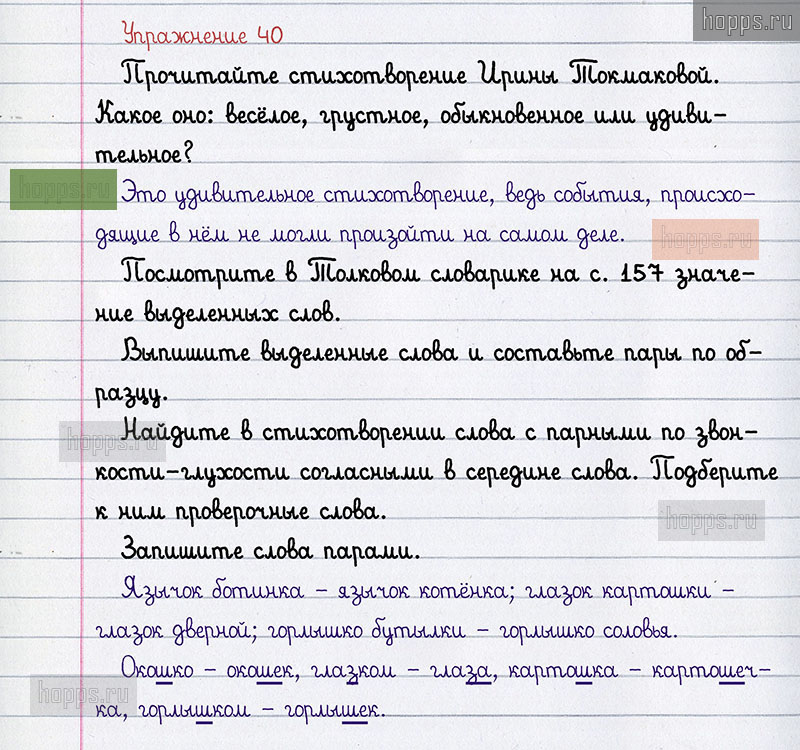 hopps.ru
Упражнение 40
Прочитайте стихотворение Ирины Токмаковой.
Какое оно: весёлое, грустное, обыкновенное или удиви-
тельное?
hopps.ru
Это удивительное стихотворение, ведь события, происхо-
дящие в нём не могли произойти на самом деле.
hopps.ru
Посмотрите в Толковом словарике на с. 157 значе-
ние выделенных слов.
Выпишите выделенные слова и составьте пары по об-
разцу.
hopps.ru
Найдите в стихотворении слова с парными по звон-
кости-глухости согласными в середине слова. Подберите
к ним проверочные слова.
hopps.ru
Запишите слова парами.
Язычок ботинка – язычок котёнка; глазок картошки –
глазок дверной; горлышко бутылки – горлышко соловья.
Окошко – окошек, глазком – глаза, картошка – картошеч-
hopps.ru
ка, горлышком – горлышек.